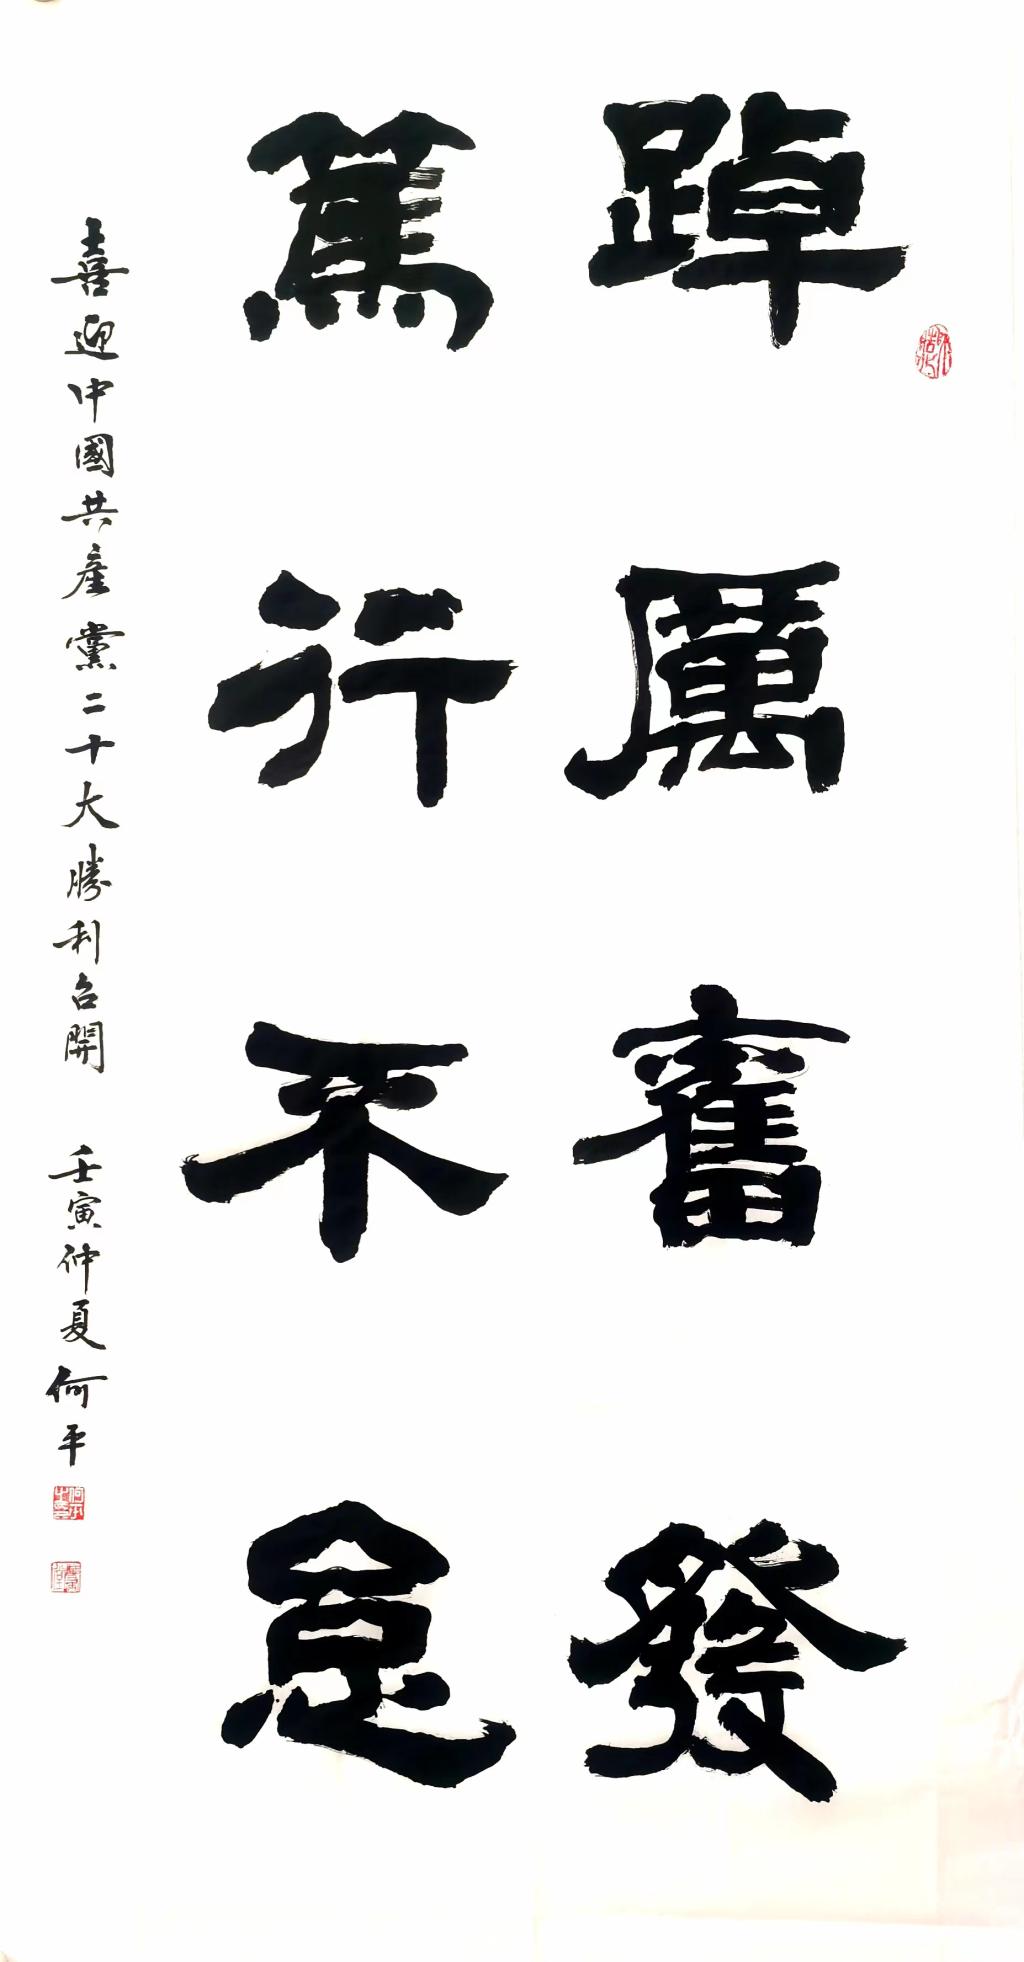 踔厲奮發
篤行不怠
喜迎中國共產黨二十大勝利召開 壬寅仲夏何平